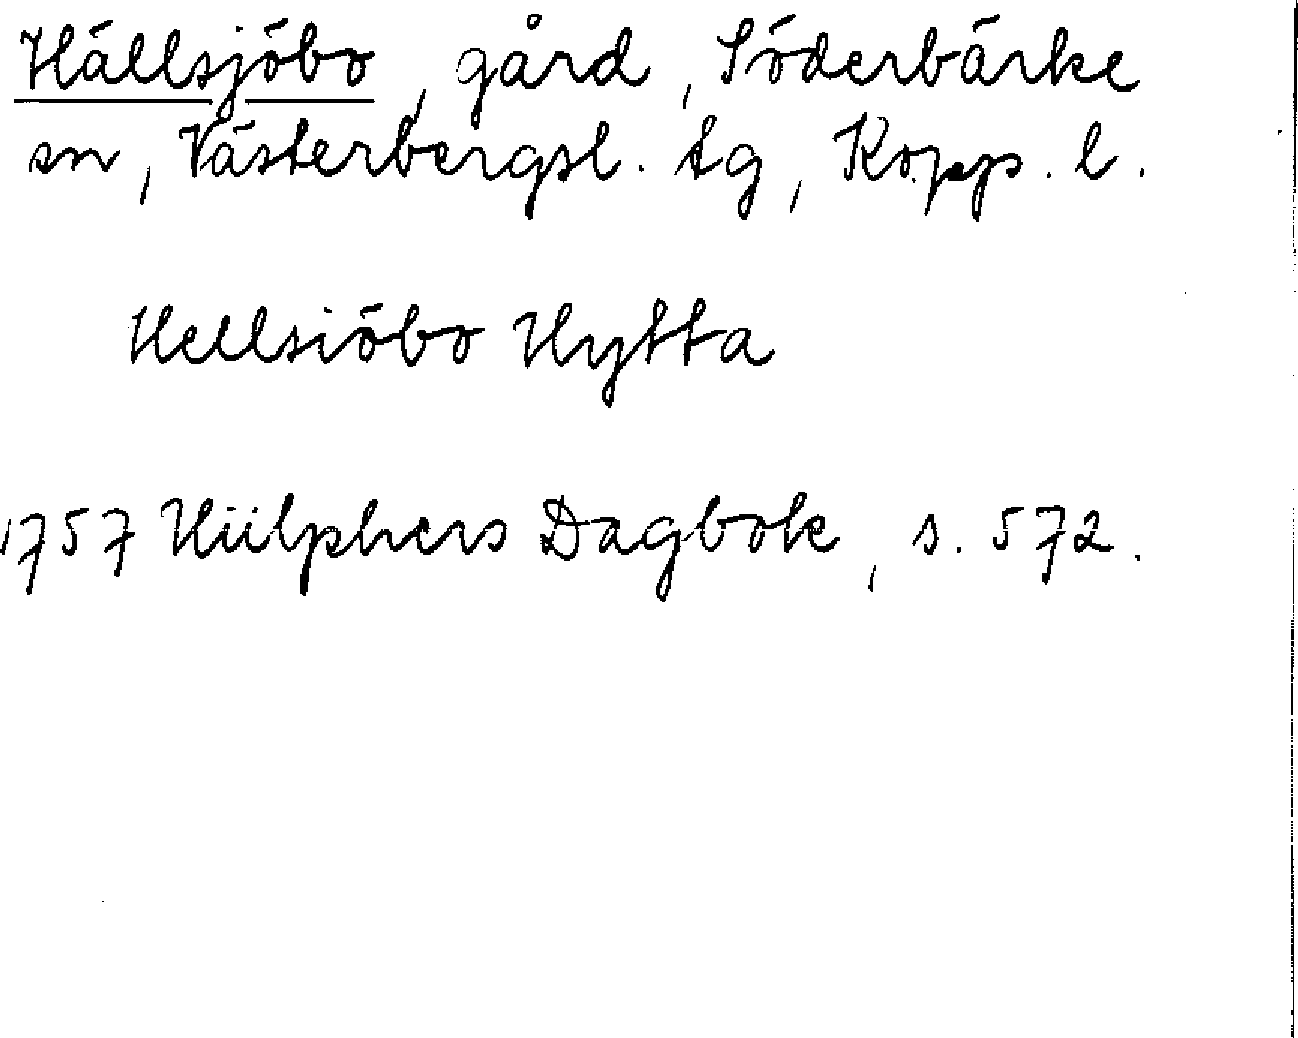 Hällsjöbo, gård, Söderbärke
sn, Västerbergsl. tg, Kopp. l.
Hellsiöbo Hytta
1757 Hülphers Dagbok, s. 572.